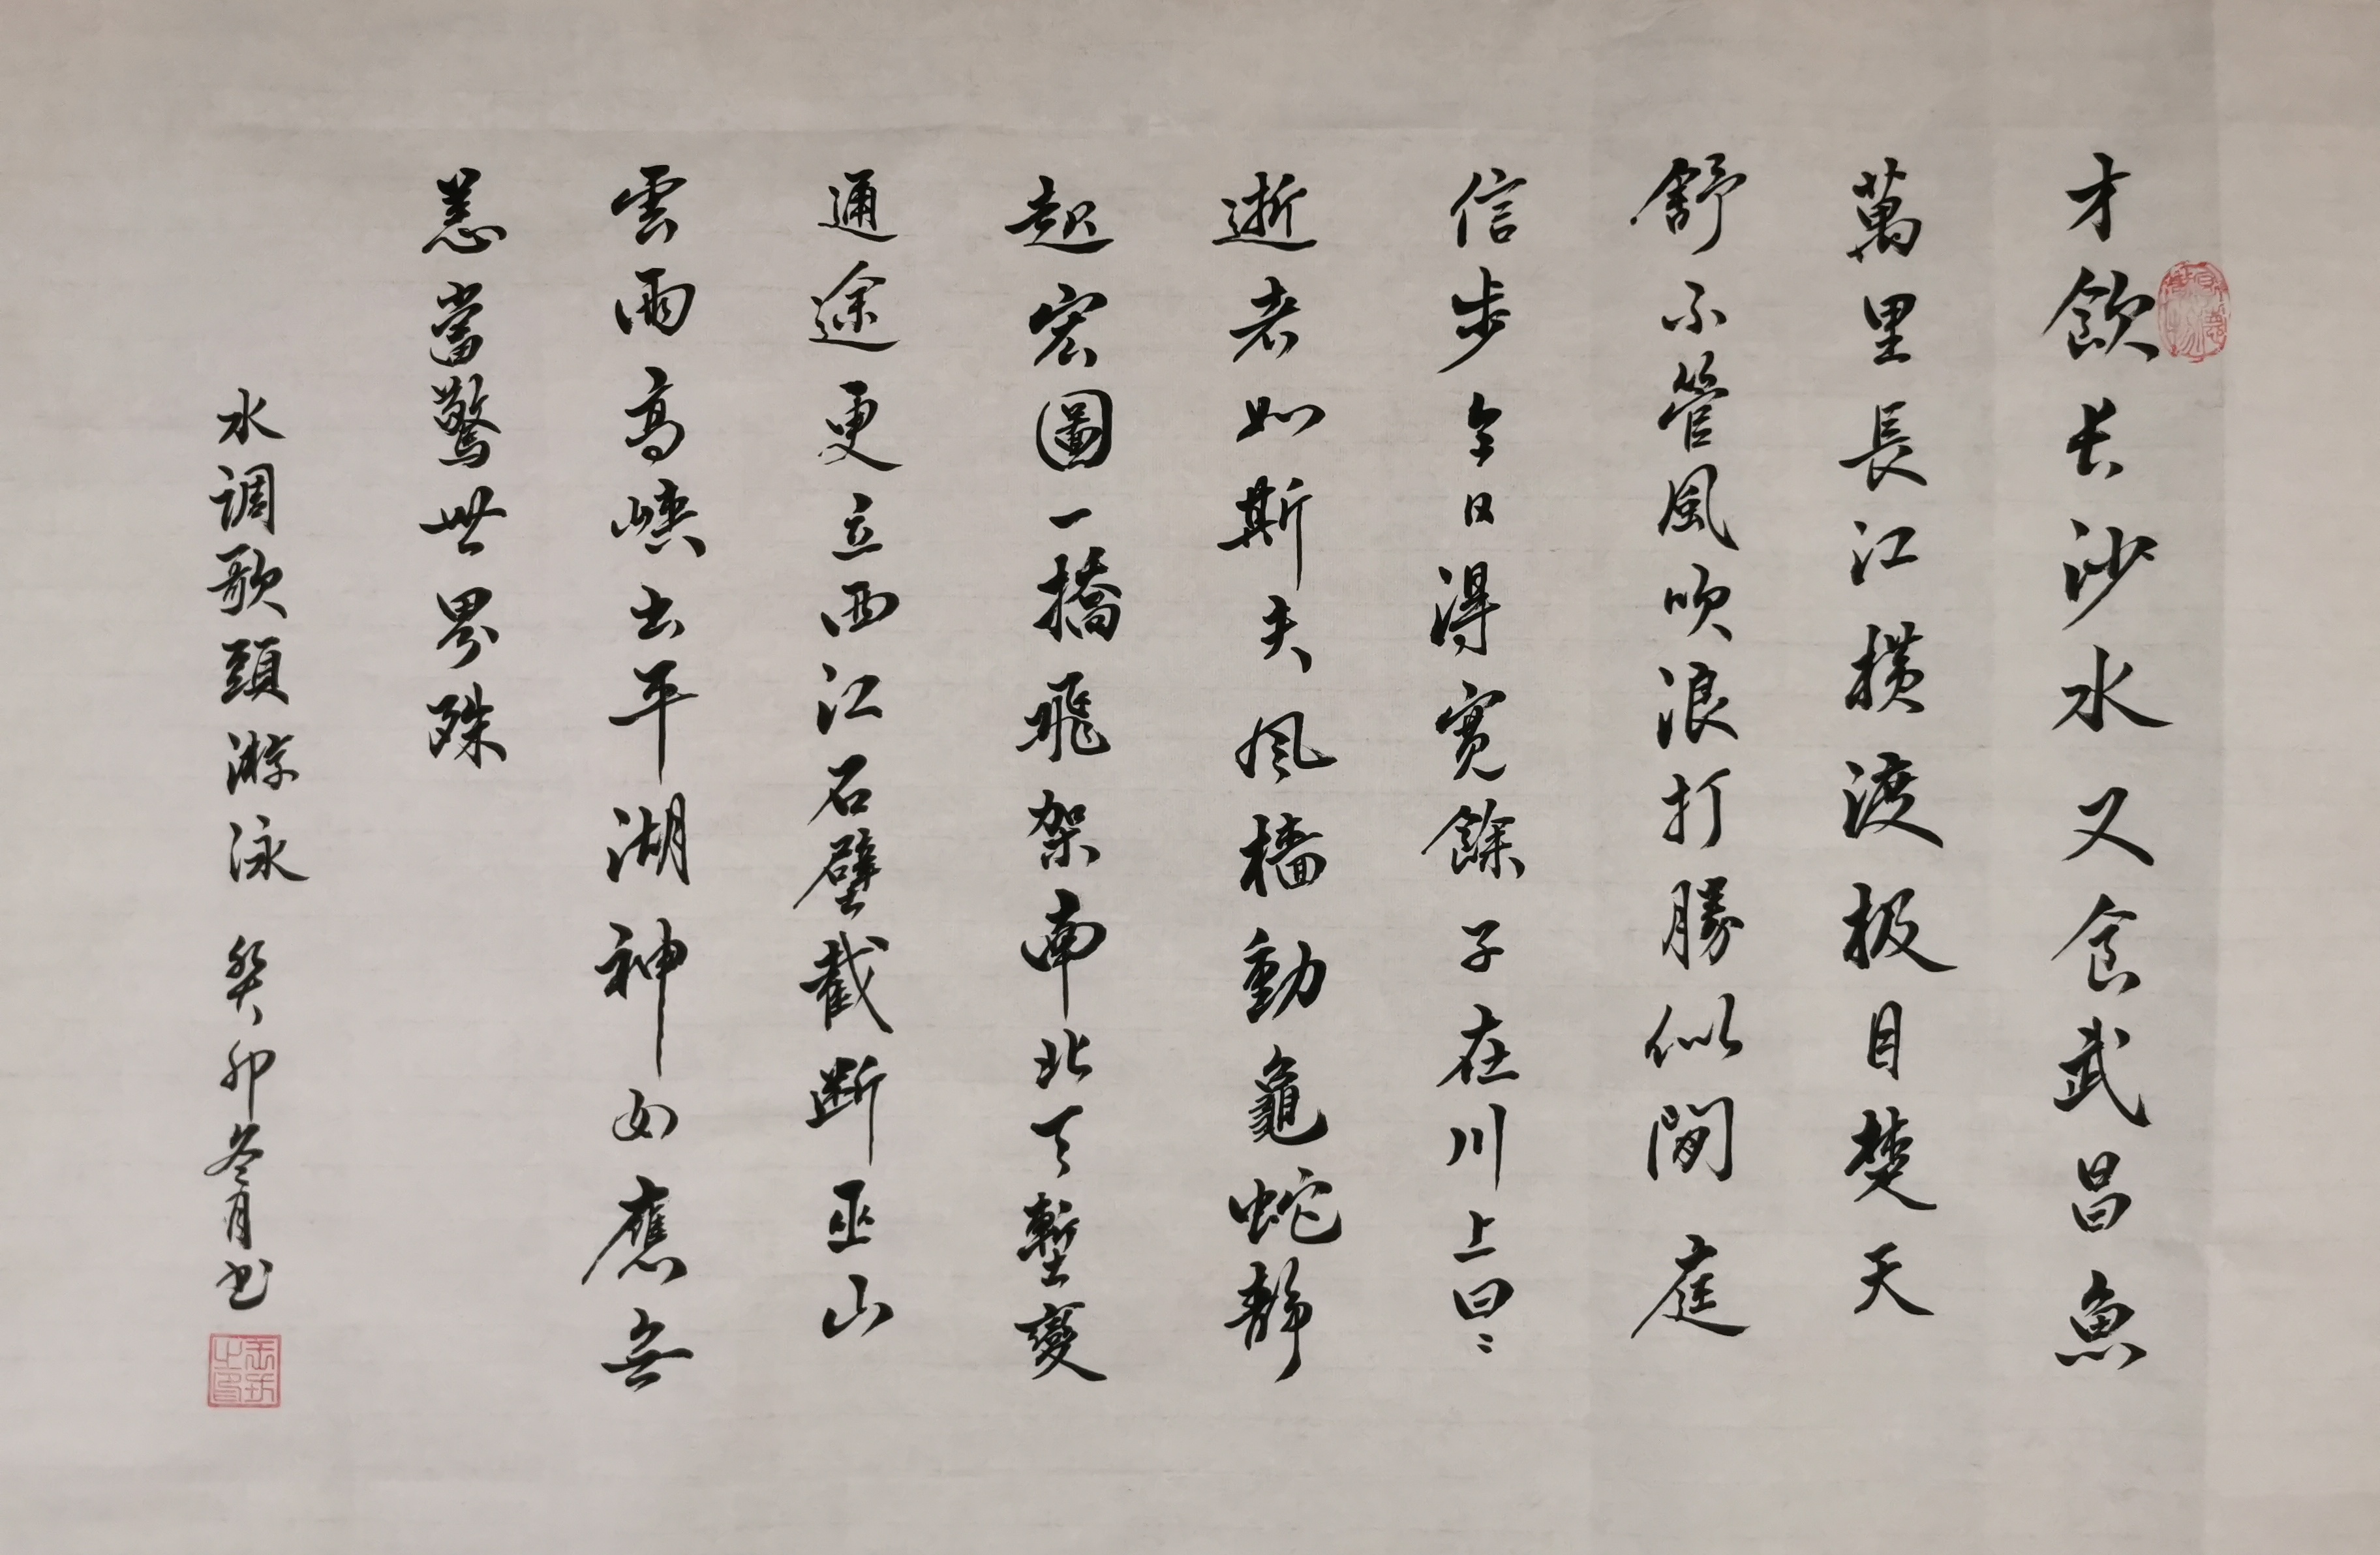 才飲长沙水又食武昌魚
萬里長江横渡极目楚天
舒不管風吹浪打勝似閒庭
信步今日得宽餘子在川上曰〻
逝者如斯夫风檣動龜蛇静
起宏圖一橋飛架南北天塹變
通途更立西江石壁截断巫山
雲雨高峡出平湖神女應無
恙當驚世界殊
水调歌頭游泳 癸卯冬月书